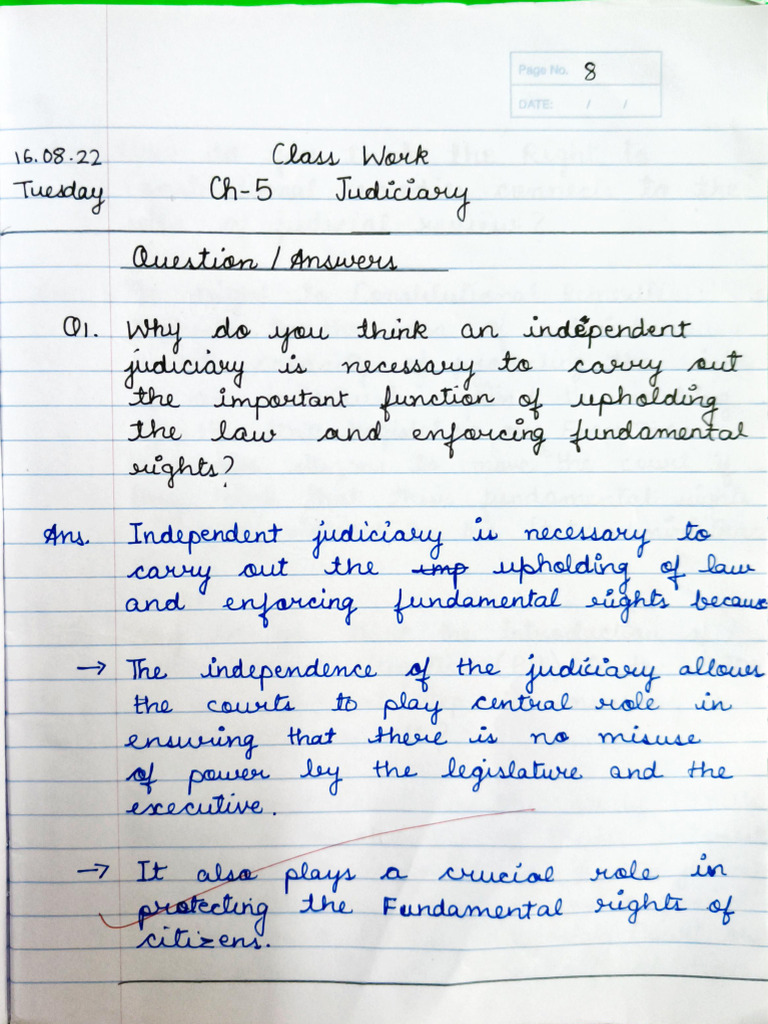 Page No. 8
DATE: / /
16.08.22 Class Work
Tuesday Ch-5 Judiciary
Question / Answers
Q1. Why do you think an independent
judiciary is necessary to carry out
the important function of upholding
the law and enforcing fundamental
rights?
Ans. Independent judiciary is necessary to
carry out the imp upholding of law
and enforcing fundamental rights because
→ The independence of the judiciary allows
the courts to play central role in
ensuring that there is no misuse
of power by the legislature and the
executive.
→ It also plays a crucial role in
protecting the Fundamental rights of
citizens.